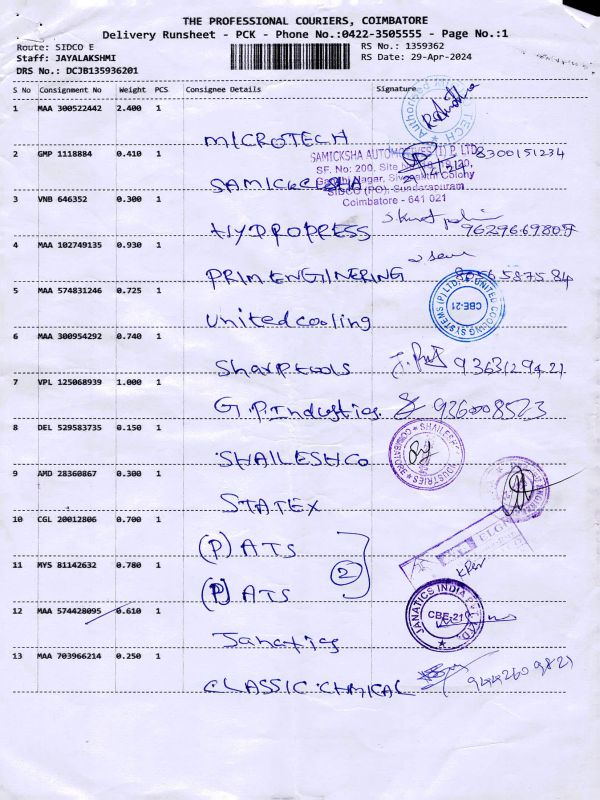 THE PROFESSIONAL COURIERS, COIMBATORE
Delivery Runsheet - PCK - Phone No.:0422-3505555 - Page No.:1
Route: SIDCO E RS No.: 1359362
Staff: JAYALAKSHMI RS Date: 29-Apr-2024
DRS No.: DCJB135936201
S No Consignment No Weight PCS Consignee Details Signature
1 MAA 300522442 2.400 1
MICROTECH
2 GMP 1118884 0.410 1 SAMICKSHA AUTOMOTIVES (I) P LTD 8300151234
SF. No: 200, Site
Nagar, Colony
SIDCO (PO), Sundarapuram
Coimbatore - 641 021
3 VNB 646352 0.300 1
HYDROPRESS 9629669807
4 MAA 102749135 0.930 1
PRIM.ENGINERING
5 MAA 574831246 0.725 1
united cooling
COOLING SYSTEMS (P) LTD. UNITED
CBE-21
6 MAA 300954292 0.740 1
Sharptools 9363129421
7 VPL 125068939 1.000 1
G.P.Industies. 936008523
8 DEL 529583735 0.150 1
SHAILESH.CO
SHAILESH INDUSTRIES COIMBATORE
9 AMD 28360867 0.300 1
STATEX
10 CGL 20012806 0.700 1
(P) ATS
11 MYS 81142632 0.780 1 2
(P) ATS
12 MAA 574428095 0.610 1
Janatics
JANATICS INDIA PVT. LTD.
CBE-21
13 MAA 703966214 0.250 1
CLASSIC.CHMICAL 9442609821